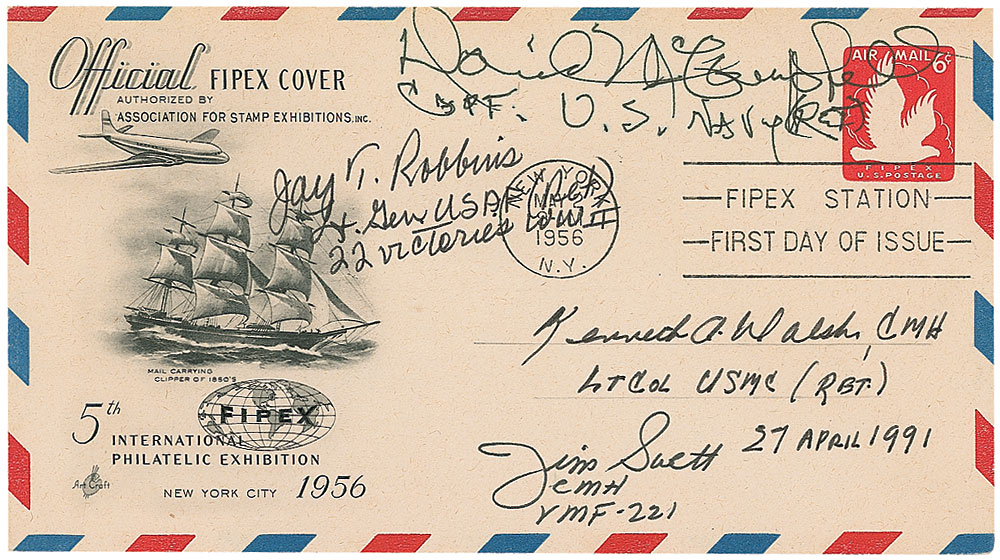 Official FIPEX COVER
AUTHORIZED BY
ASSOCIATION FOR STAMP EXHIBITIONS, INC.
David McCampbell
Capt. U.S. NAVY (RET)
AIR MAIL 6¢
FIPEX
U.S. POSTAGE
Jay T. Robbins
Lt. Gen USAF (Ret)
22 victories WWII
NEW YORK
MAY 2
1956
N.Y.
FIPEX STATION
FIRST DAY OF ISSUE
MAIL CARRYING
CLIPPER OF 1850'S
FIPEX
5th
INTERNATIONAL
PHILATELIC EXHIBITION
NEW YORK CITY 1956
Art Craft
Kenneth A. Walsh, CMH
LTCOL USMC (RET.)
27 APRIL 1991
Jim Swett
CMH
VMF-221